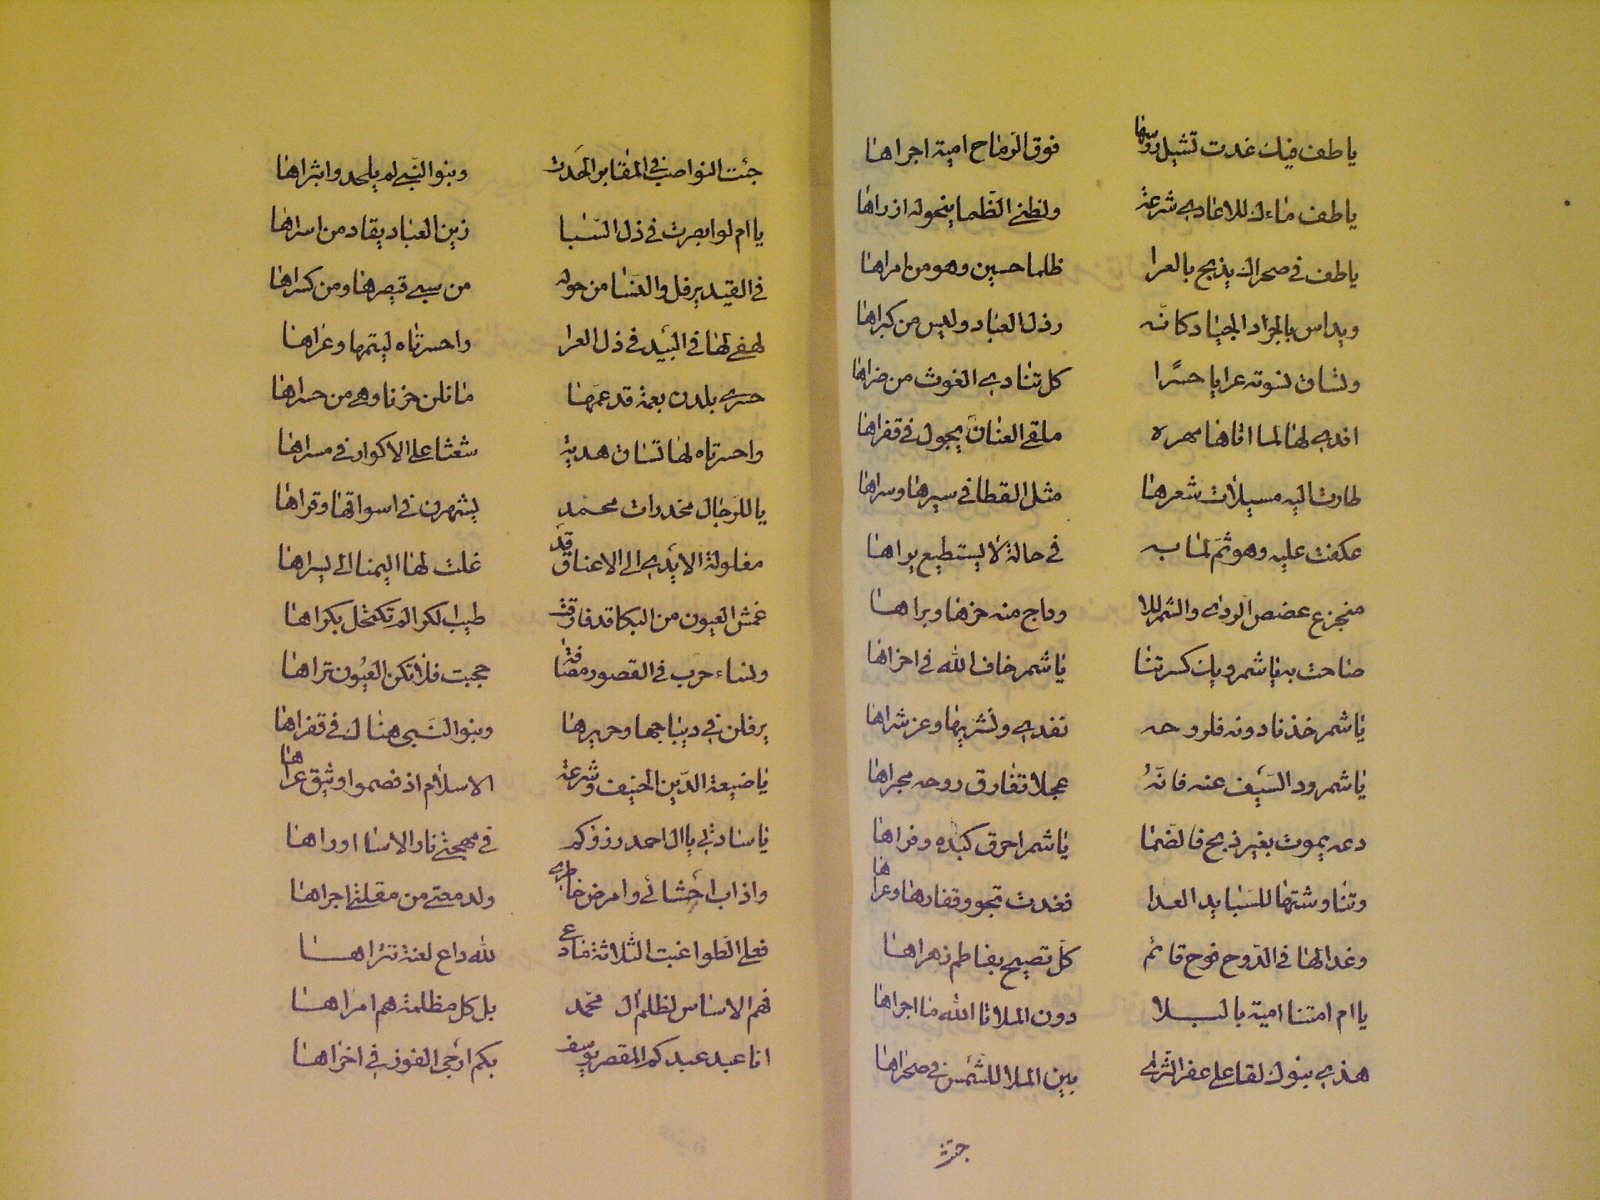 يا طف فيك غدت تشيل روسها فوق الرماح امية اجراها
يا طف ماءك للاعادي شرعة ولظني الظما ينحوله ازراها
يا طف في صحراك يذبح بالعرا ظلما حسين وهو من امراها
ويداس بالجرد الجياد كانه رذل العباد وليس من كبراها
وتساق نسوته عرايا حسرا كل تنادي الغوث من ضراها
افدي لها لما اتاها مهره ملقى العنان يجول في قفراها
طارت اليه مسبلات شعرها مثل القطا في سيرها وسراها
عكفت عليه وهو ثم لما به في حالة لا يستطيع يراها
متجزع غصص الردى والشمر للا وداج منه حزها وبراها
صاحت به يا شمر ويك كسرتنا يا شمر خاف الله في اخراها
يا شمر خذنا دونه فلروحه نفدي ونشريها وعز شراها
يا شمر رد السيف عنه فانه عجلا تفارق روحه مجراها
دعه يموت بغير ذبح فالضما يا شمر احرق كبده وفراها
وتناوشتها للسبا يد العدا فغدت تجوو قفارها وعراها
وغدا لها في الدوح نوح قائم كل تصيح بفاطم زهراها
يا ام امتنا امية بالبلا دون الملا تا الله ما اجراها
هذي بنوك لقا على عفر الثرى بين الملا للشمس في صحراها
جثث
جثث النواصب في المقابر الحدت وبنو النبي لم يلحدوا بثراها
يا ام لو ابصرت في ذل السبا زين العباد يقاد من اسراها
في القيد يرفل والنسا من حوله من سبي قيصرها ومن كسراها
لهفي لها في البيد في ذل العرا واحسرتاه ليتمها وعراها
حسرى بلدن بعمة قد عمها ما نلن حزنا وهي من حسراها
واحسرتاه لها تساق هدية شعثا على الاكوار في مسراها
يا للرجال مخدرات محمد يشهرن في اسواقها وقراها
مغلولة الايدي الى الاعناق قد غلت لها اليمنا الى يسراها
عمش العيون من البكا قد فارقت طيب الكرا لم تكتحل بكراها
ونساء حرب في القصور مصانة حجبت فلا تكن العيون تراها
يرفلن في ديباجها وحريرها وبنو النبي هناك في قفراها
يا ضيعة الدين الحنيف وشرعة الاسلام اذ فصموا وثيق عراها
يا سادتي يا ال احمد رزؤكم في مهجتي نار الاسا اوراها
واذاب احشائي وامرض خاطري ولدمعتي من مقلتي اجراها
فعلى الطواغيت الثلاثة ما دعى لله داع لعنة تتراها
فهم الاساس لظلم ال محمد بل كل مظلمة هم امراها
انا عبد عبدكم المقصر يوسف بكم ارجى الفوز في اخراها